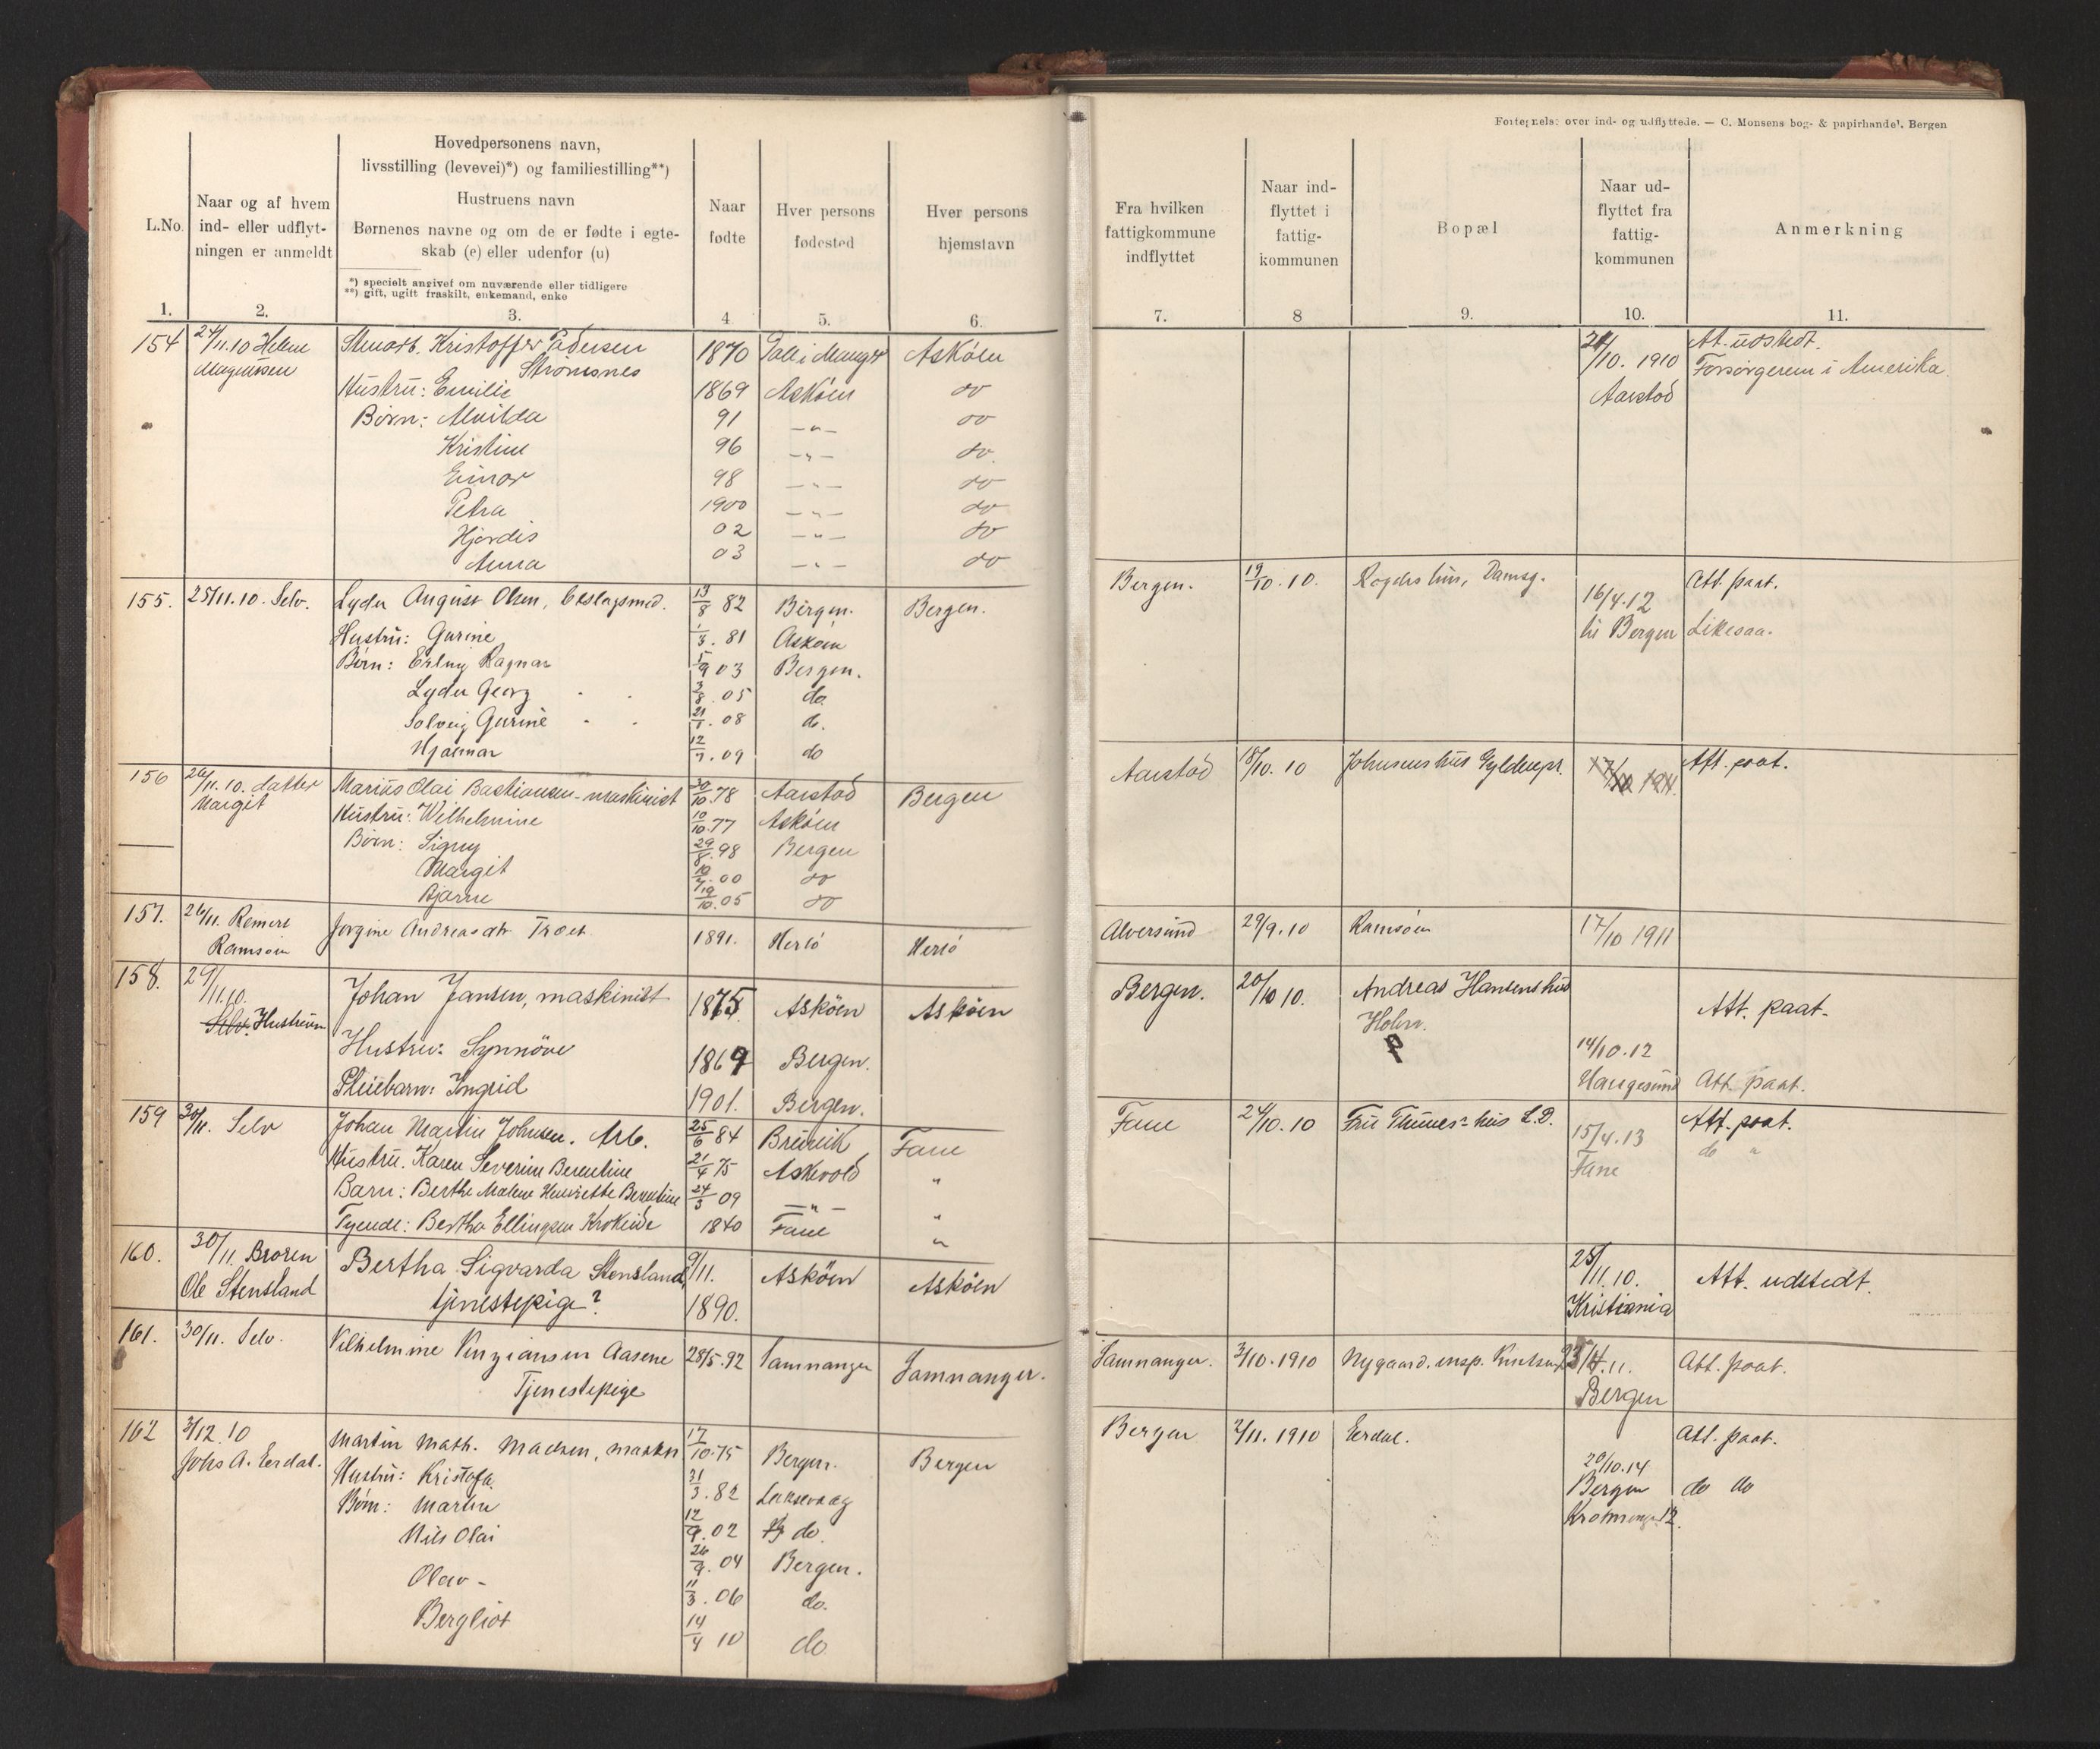 Fortegnelse over ind- og udflyttede. — C. Monsens bog- & papirhandel. Bergen
L.No.
Naar og af hvem
ind- eller udflyt-
ningen er anmeldt
Hovedpersonens navn,
livsstilling (levevei)*) og familiestilling**)
Hustruens navn
Børnenes navne og om de er fødte i egte-
skab (e) eller udenfor (u)
*) specielt angivet om nuværende eller tidligere
**) gift, ugift fraskilt, enkemand, enke
Naar
fødte
Hver persons
fødested
Hver persons
hjemstavn
Fra hvilken
fattigkommune
indflyttet
Naar ind-
flyttet i
fattig-
kommunen
Bopæl
Naar ud-
flyttet fra
fattig-
kommunen
Anmerkning
1. 2. 3. 4 5. 6. 7. 8 9. 10. 11.
154 24/11.10 Helene Kristoffer Pedersen 1870 Askøen 21/10. 1910 At. udstedt.
Magnussen Strømsnes Forsørgeren i Amerika.
Hustru: Emilie 1869 Askøen do Aarstad
Børn: Alvilda 91 —"— do
Kristine 96 —"— do.
Einar 98 —"— do
Petra 1900 —"— do
Hjørdis 02 —"— do
Anna 03 —"— do
155. 25/11.10. Selv. Lyder August Olsen, beslagsmed. 13/8 82 Bergen. Bergen. Bergen. 19/10.10. hus, Damsg. 16/4.12 Att. paat.
Hustru: Gurine 1/3. 81 Askøen til Bergen Likesaa.
Børn: Erling Ragnar 5/9 03 Bergen.
Lyder Georg 3/8. 05 do
Solveig Gurine 21/1. 08 do.
Hjalmar 12/7. 09 do
156 26/11.10. datter Marius Olai Bastiansen - maskinist 30/10.78 Aarstad Bergen Aarstad 18/10.10 Johnsens hus Gyldenpr. Att. paat.
Margit Hustru: Wilhelmine 10/10.77 Askøen
Børn: Signy 29/8.98 Bergen
Margit 10/7.00 do
Bjarne 19/10.05 do
157. 26/11. Remert Jorgine Andreasdtr 1891. Herlø Herlø Alversund 29/9.10 Ramsøen 17/10 1911
Ramsøen
158. 29/11.10. Johan Jansen, maskinist 1875 Askøen Askøen Bergen. 20/10 10. Andreas Hansens hus Att. paat.
Selv. Hustruen Holm.
Hustru: Synnöve 1869 Bergen. 14/10.12
Pleiebarn: Ingrid 1901. Bergen. Haugesund Att. paat.
159 30/11. Selv Johan Martin Johnsen. Arb. 25/6 84 Bruvik Fane Fane 24/10.10 Fru hus L.D. 15/4.13 Att. paat.
Hustru. Karen Severine Berentine 21/4 75 Askevold " Fane do "
Barn: Berthe Malene Henriette Berentine 24/3 09 —"— "
Tyende: Bertha Ellingsen Krokeide 1840 Fane "
160. 30/11. Broren Bertha Sigvarda Stensland, 9/11. Askøen Askøen 25/11.10. Att. udstedt.
Ole Stensland tjenestepige? 1890. Kristiania
161. 30/11. Selv. Vilhelmine Aasene 28/5.92 Samnanger Samnanger. Samnanger. 3/10.1910 Nygaard, insp. 11. Att. paat.
Tjenestepige Bergen
162 3/12.10 Martin Math. Madsen, 17/10.75 Bergen. Bergen Bergen 2/11.1910 Eerdal. Att. paat.
Johs A. Eerdal. Hustru: Kristofa. 31/3.82 Laksevaag 20/10.14
Børn: Martin 12/9.02 do Bergen do do
Nils Olai 26/9.04 Bergen. 12.
Olav - 11/3.06 do.
Bergliot 14/4 10 do